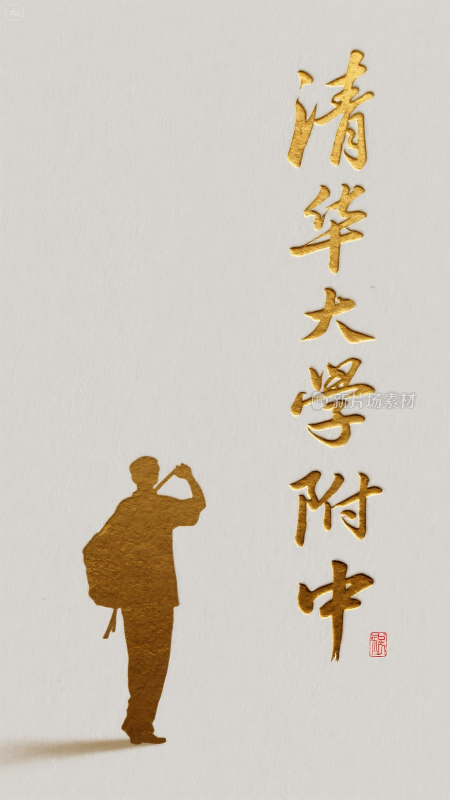 清华大学附中
新片场素材